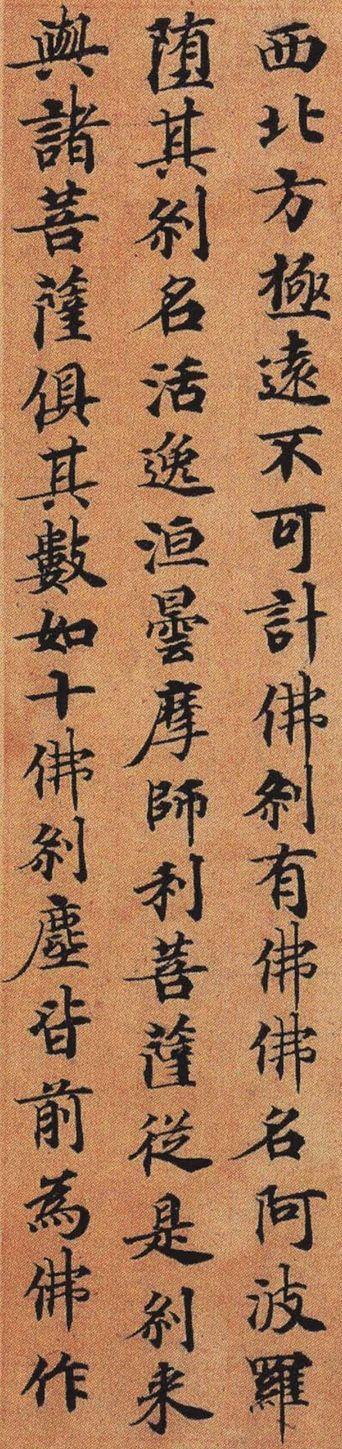 西北方極遠不可計佛刹有佛佛名阿波羅
堕其刹名活逸洹曇摩師利菩薩從是刹来
與諸菩薩俱其數如十佛刹塵皆前為佛作